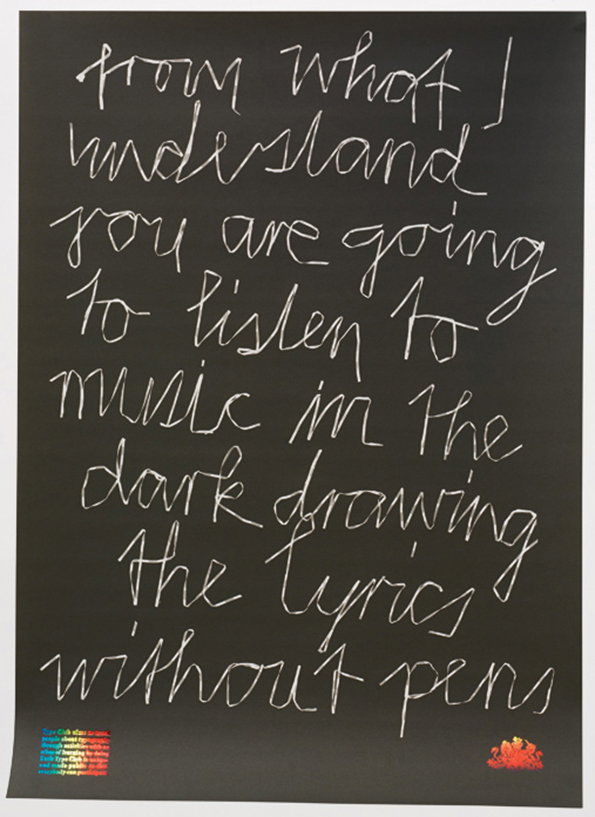 from what I
understand
you are going
to listen to
music in the
dark drawing
the lyrics
without pens
Type Club aims to
people about
through activities with
of learning by doing
Each Type Club is unique
and made public so that
everybody can participate